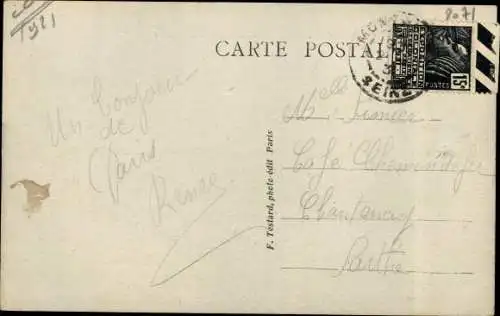 1921
2071
CARTE POSTALE
SEINE
POSTES
15c
Un bonjour
de
Paris
Renée
F. Testard, photo édit Paris
Melle
Café Chemin de fer
Chantenay
Sarthe